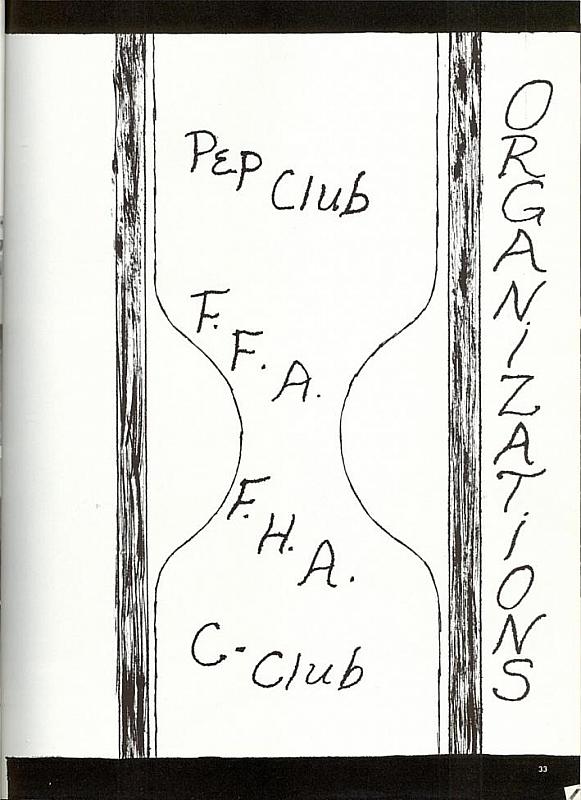 PEP Club
F. F. A.
F. H. A.
C-Club
ORGANIZATIONS
33